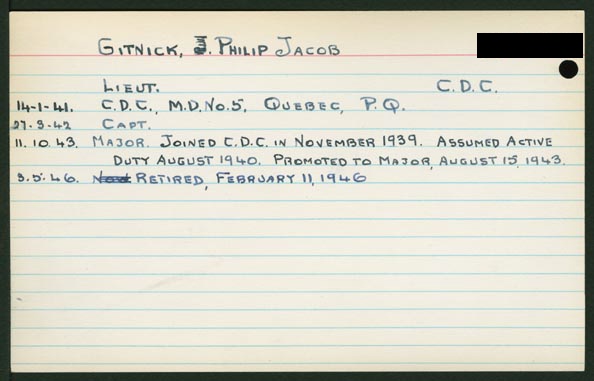 GITNICK, J. PHILIP JACOB
LIEUT. C.D.C.
14-1-41. C.D.C., M.D. No. 5, QUEBEC, P.Q.
27.3.42 CAPT.
11.10.43. MAJOR. JOINED C.D.C. IN NOVEMBER 1939. ASSUMED ACTIVE
DUTY AUGUST 1940. PROMOTED TO MAJOR, AUGUST 15, 1943.
3.5.46. RETIRED, FEBRUARY 11, 1946